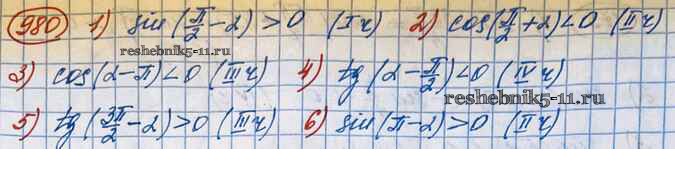 980 1) sin(π/2 - α) > 0 (I ч) 2) cos(π/2 + α) < 0 (II ч)
reshebnik5-11.ru
3) cos(α - π) < 0 (III ч) 4) tg(α - π/2) < 0 (IV ч)
reshebnik5-11.ru
5) tg(3π/2 - α) > 0 (III ч) 6) sin(π - α) > 0 (II ч)